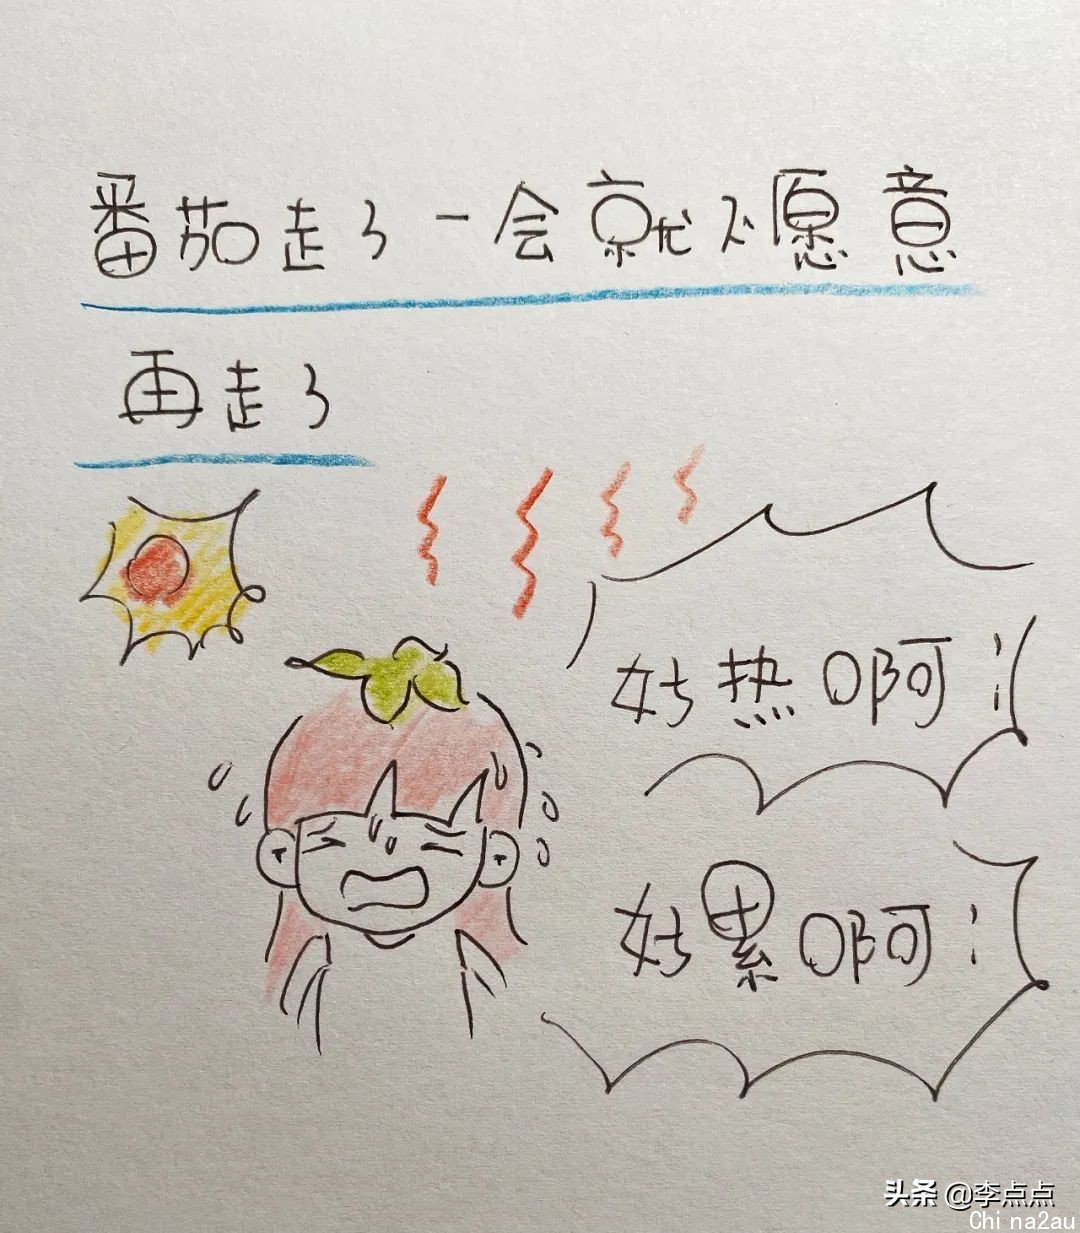 番茄走了一会就不愿意
再走了
好热啊！
好累啊！
头条 @李点点
Chi na2au